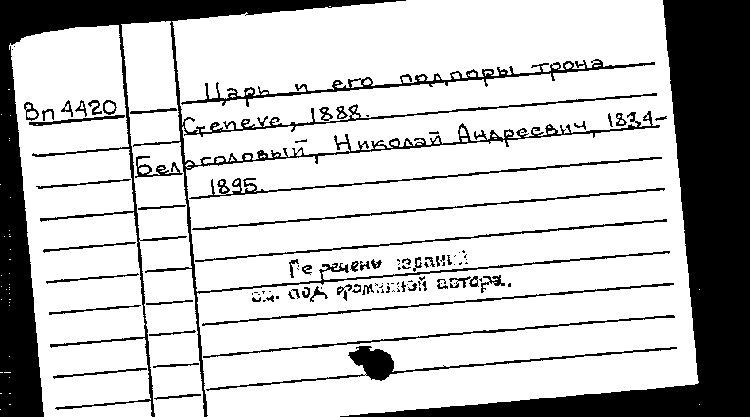 Царь и его подпоры трона.
Зп 4420
Geneve, 1888.
Белоголовый, Николай Андреевич, 1834-
1895.
Перечень изданий
см. под фамилией автора.